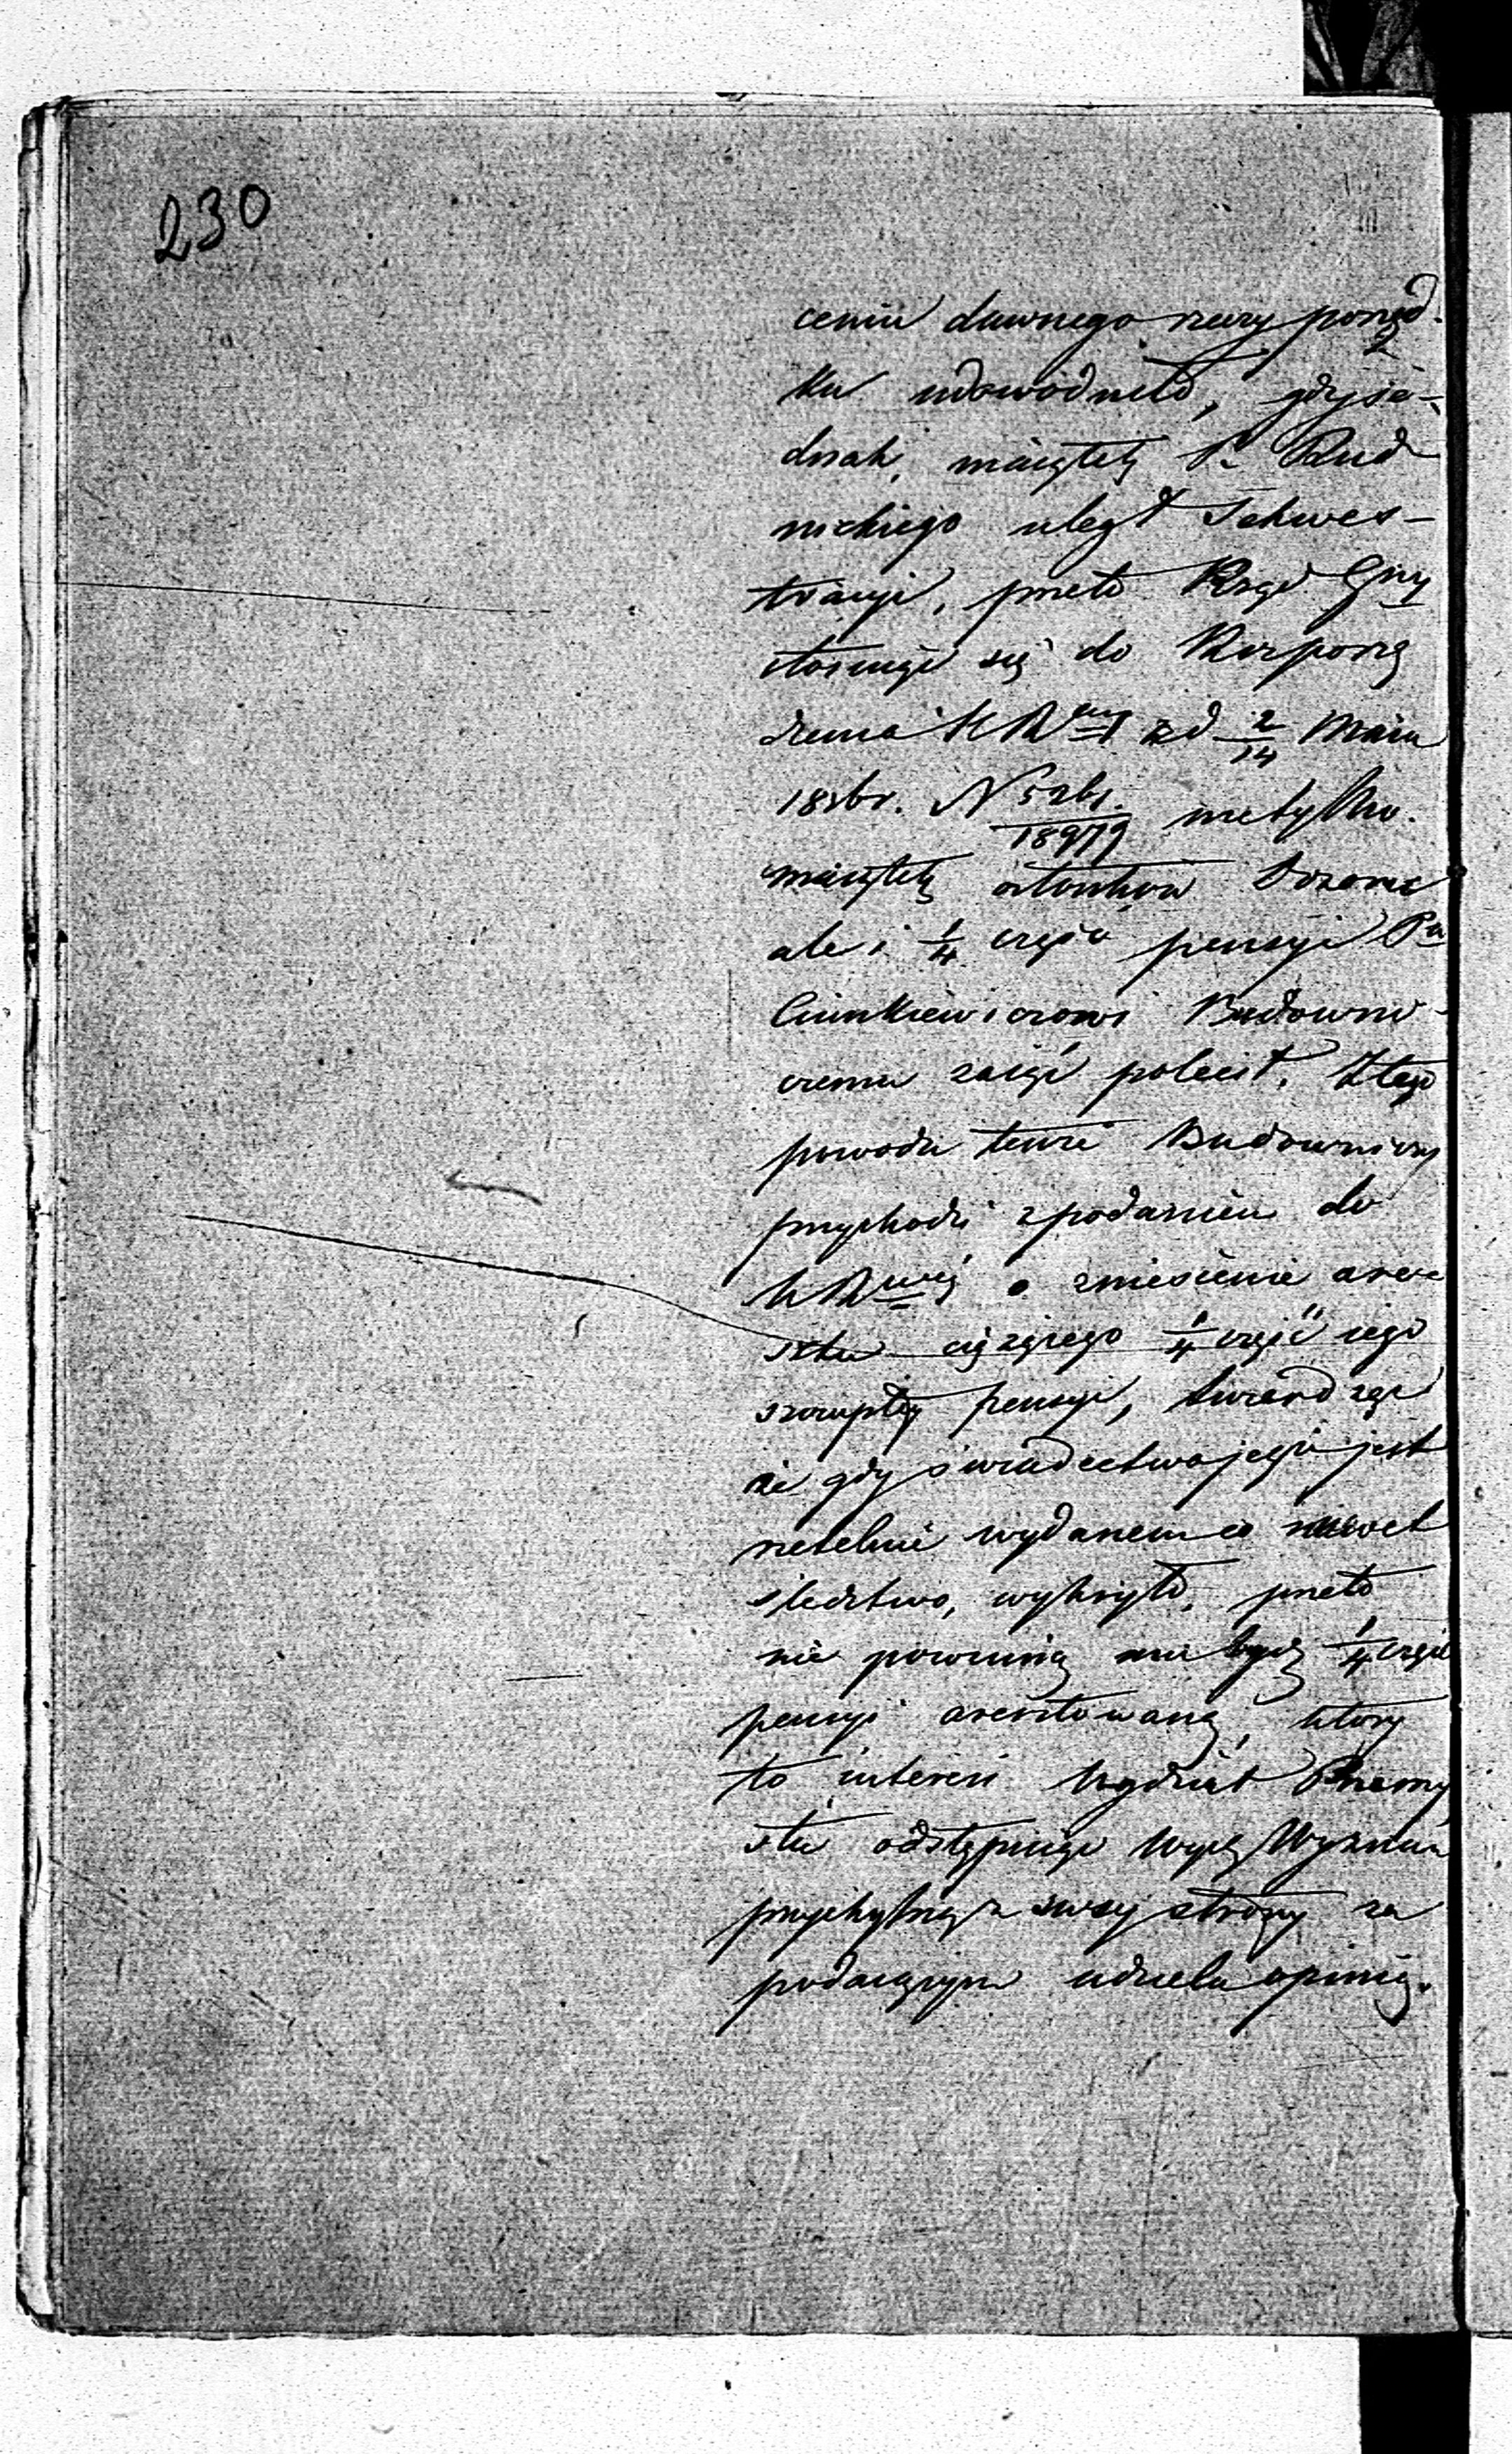 230
ceniu dawnego rzeczy porząd-
ku udowodniło, gdy je-
dnak, majątek P. Rud
nickiego uległ Sekwes-
tracyi, przeto Rząd Gny
stosując się do Rozporzą
dzenia KR z d 2/14 Maja
183br. N 5261/18979 nietylko
majątek członków Dozoru
ale i 1/4 część pensyi Pu
Ciunkiewiczowi Budowni-
czemu zająć polecił. Z tego
powodu tenże Budowniczy
przychodzi z podaniem do
KR o zniesienie are-
sztu ciążącego 1/4 część jego
szczupłej pensyi, twierdząc
że gdy świadectwo jego jest
rzetelnie wydanem co nawet
śledztwo, wykryło, przeto
nie powinną mu bydź 1/4 część
pensyi aresztowaną, który
to interes Wydział Przemy
słu odstępując Wyd. Wyznań
przychylną z swej strony za
podającym udziela opinią.